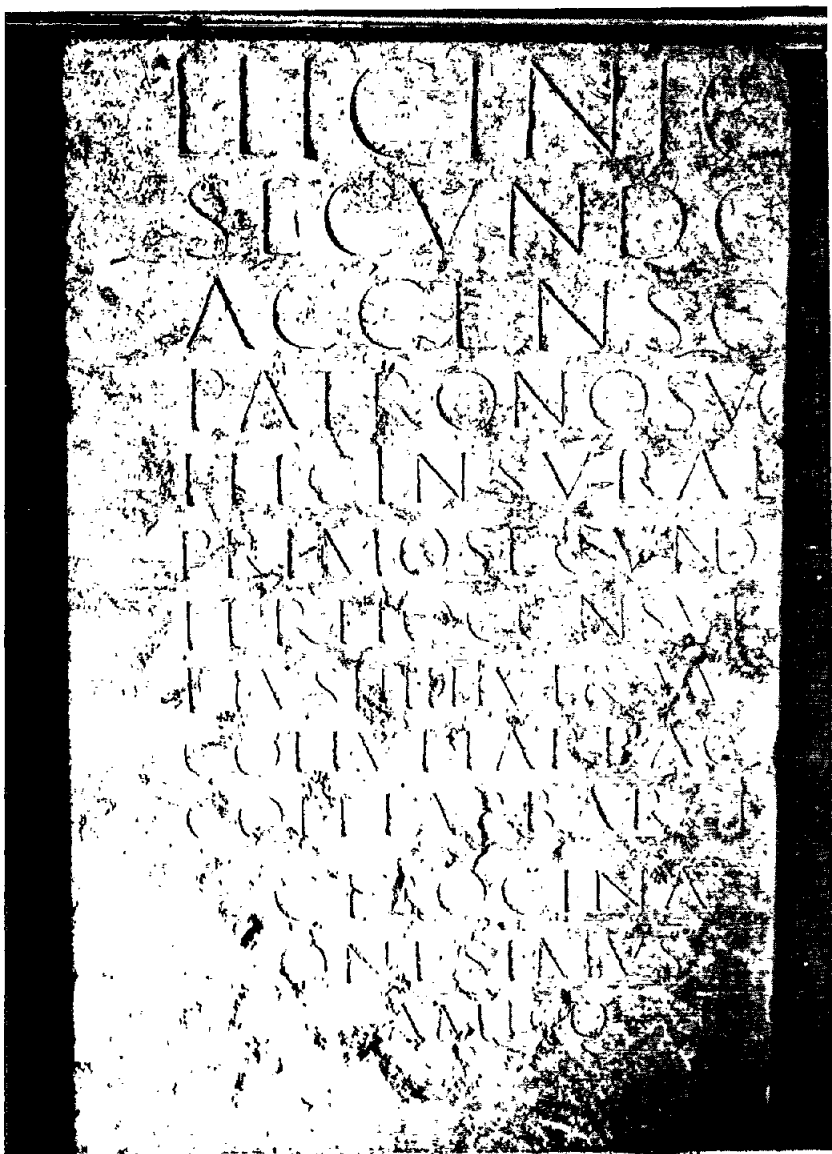 L LICINIO
SECVNDO
ACCENSO
PATRONO SVO
L LICIN SVRAE
PRIMO SECVND
TERTIO CONSVL
EIVS IIIIII VIR
COL I V T TARRAC
COL F I A P BARCI
C TROCINA
ONESIMVS
AMICO